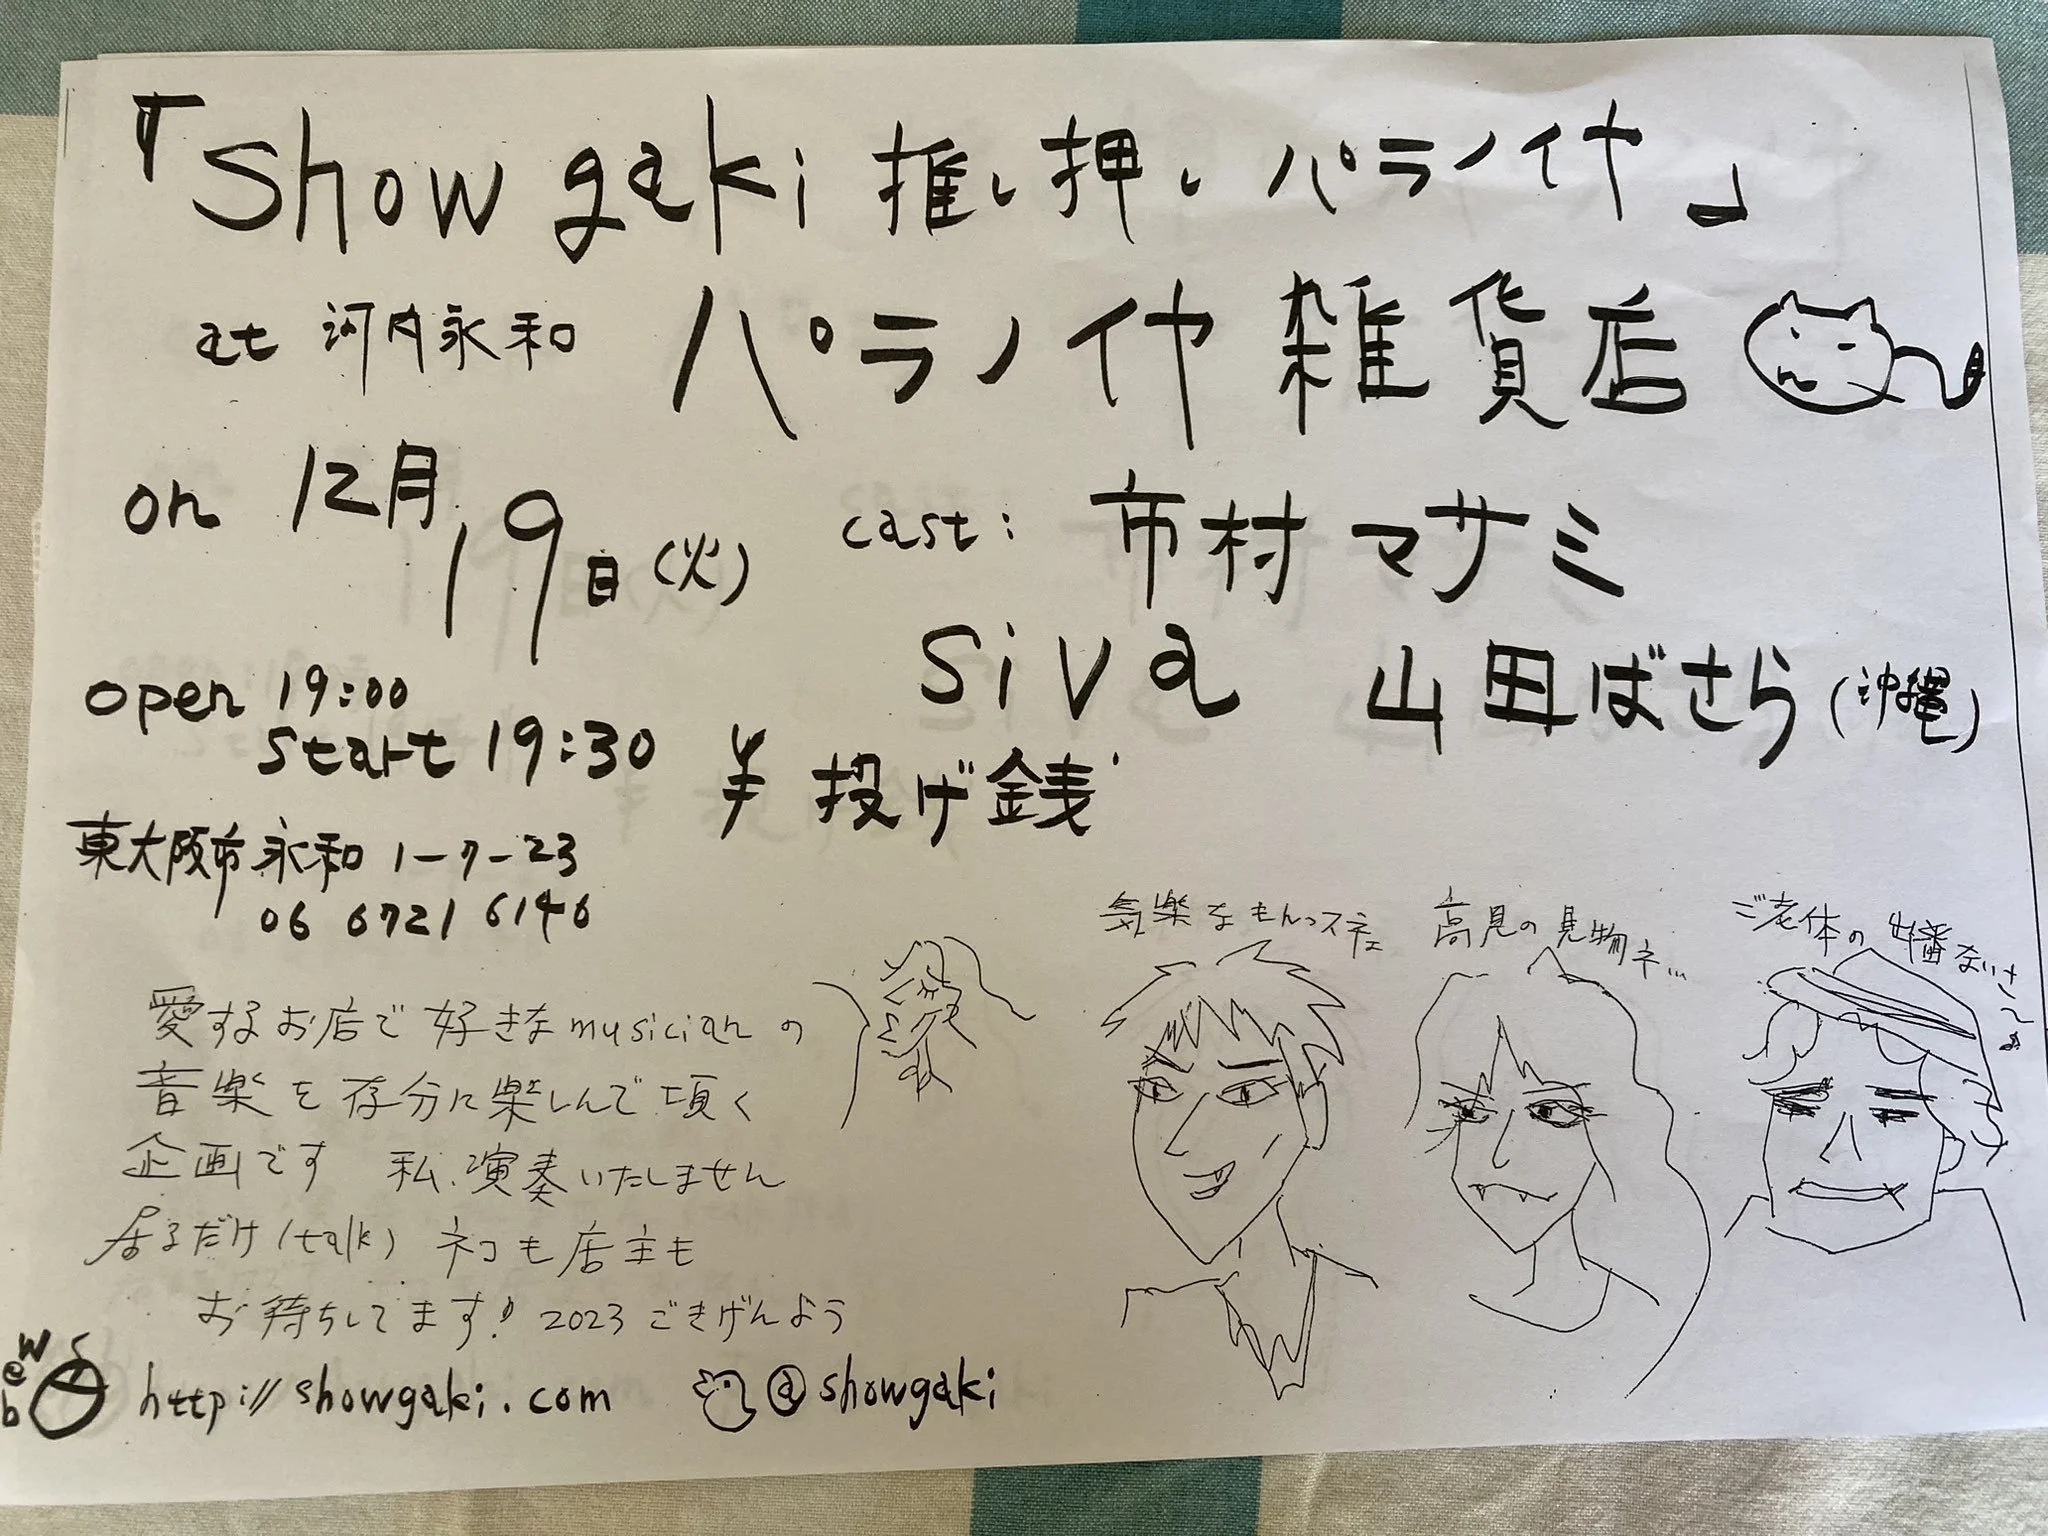 『Show gaki 推し押しパラノイヤ』
at 河内永和 パラノイヤ雑貨店
on 12月19日(火)
cast: 市村マサミ
siva 山田ばさら(沖縄)
open 19:00
start 19:30
¥ 投げ銭
東大阪市永和 1-7-23
06 6721 6146
気楽なもんっスネェ
高見の見物ネ…
ご老体の出番ないさ
愛するお店で好きなmusicianの
音楽を存分に楽しんで頂く
企画です 私、演奏いたしません
居るだけ(talk) ネコも店主も
お待ちしてます! 2023 ごきげんよう
web
http://showgaki.com
@showgaki